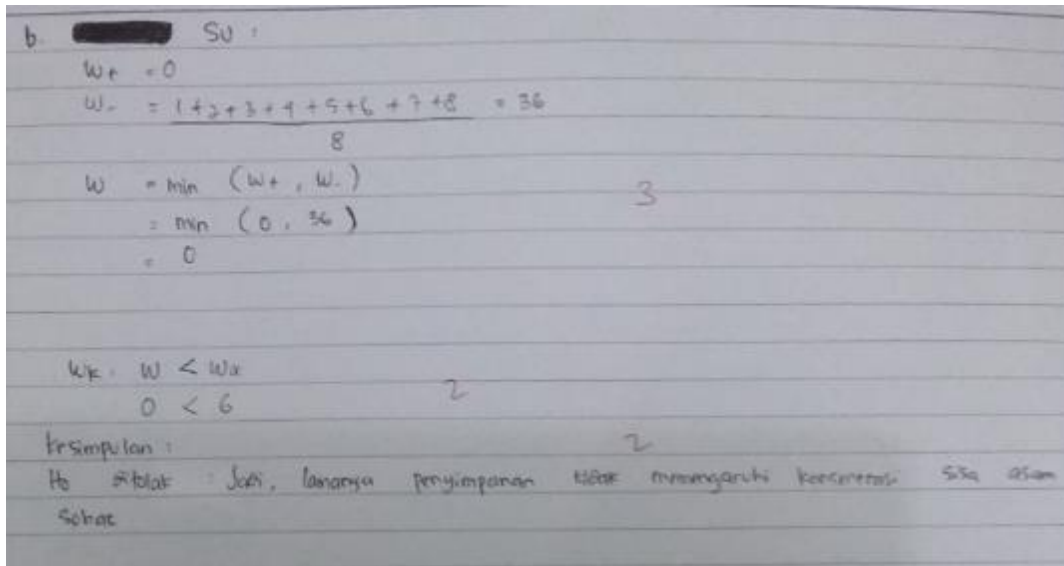 b. SU :
W+ = 0
W- = 1+2+3+4+5+6+7+8 = 36
8
W = min (W+, W-)
= min (0, 36) 3
= 0
WK : W < Wα
0 < 6 2
Kesimpulan : 2
Ho ditolak : Jadi, lamanya penyimpanan tidak memengaruhi konsentrasi sisa asam